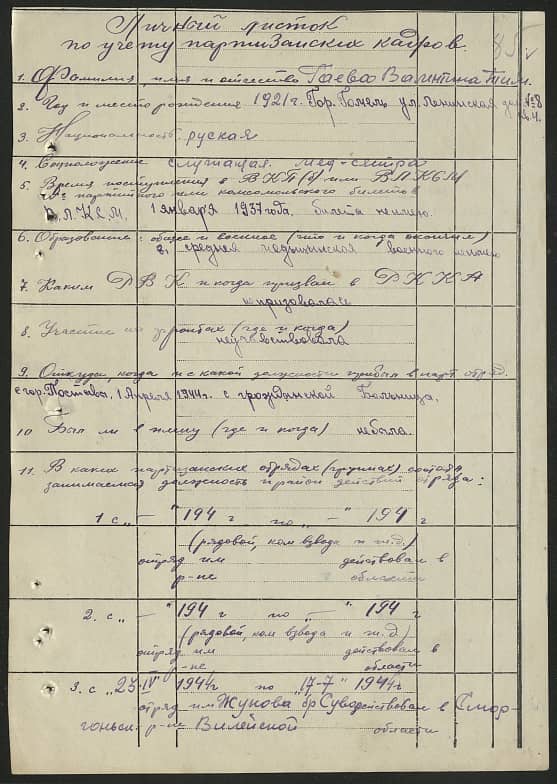 85
Личный листок
по учету партизанских кадров.
1. Фамилия, имя и отчество Гаева Валинтина Тим.
2. Год и место рождения 1921 г. Гор. Гомель ул. Ленинская дом №8
кв. 4.
3. Национальность. руская
4. Соцположение служащая. мед-сетра
5. Время поступления в ВКП(б) или ВЛКСМ
№ партийного или комсомольского билетов
В.Л.К.С.М. 1 января 1937 года. билета не имею.
6. Образование: общее и военное (что и когда окончил)
средняя медицинская военного не имею
7. Каким РВК и когда призван в РККА
не призовалась
8. Участие на фронтах (где и когда)
неучавствовала
9. Откуда, когда и с какой должности прибыл в парт. отряд.
с гор. Поставы, 1 Апреля 1944 г. с грождынской Больница.
10 Был ли в плену (где и когда) небыла.
11. В каких партизанских отрядах (группах) состоял
занимаемая должность и район действий отряда:
1 с „ — " 194 г по „ — " 194 г
(рядовой, ком взвода и т.д.)
отряд им действовал в
р-не области
2. с „ — " 194 г по „ — " 194 г
(рядовой, ком взвода и т.д.)
отряд им действовал в
р-не области
3. с „23-IV" 1944 г по „17-7" 1944 г
отряд им Жукова бр Сув действовал в Смор-
гоньск. р-не Вилейской области